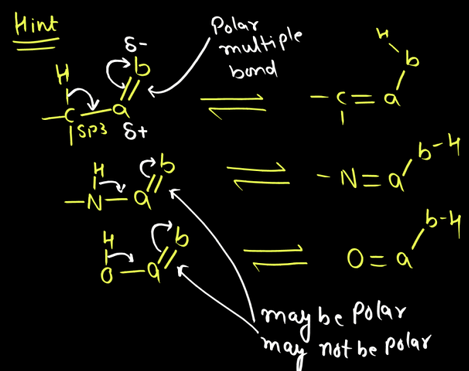 Hint
δ-
b
Polar
multiple
bond
H
-C-a
SP3
δ+
H
b
-C=a
H
b
-N-a
b-H
-N=a
H
b
O-a
b-H
O=a
may be Polar
may not be polar